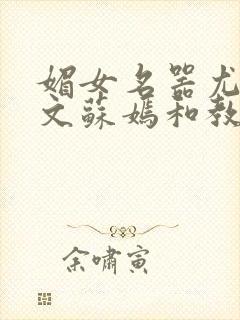 媚女名器尤
文蘇媽和教
余嘯寅